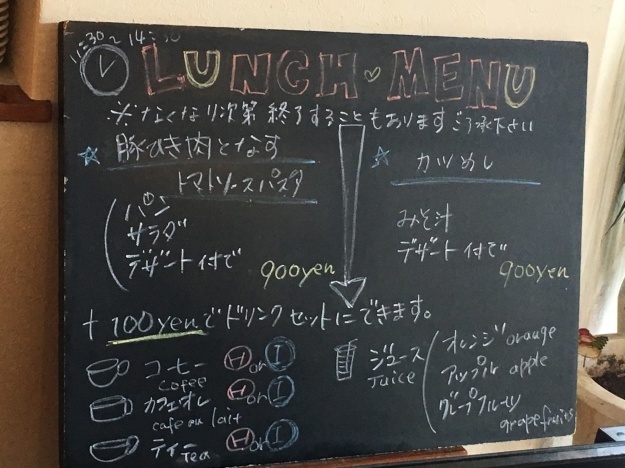 11:30~14:30
LUNCH MENU
※なくなり次第終了することもありますご了承下さい
☆ 豚ひき肉となす
トマトソースパスタ
パン
サラダ
デザート付で
900yen
☆ カツめし
みそ汁
デザート付で
900yen
+100yenでドリンクセットにできます。
コーヒー HorI
Cofee
カフェオレ HorI
cafe au lait
ティー HorI
Tea
ジュース
Juice
オレンジ orange
アップル apple
グレープフルーツ
grapefruits